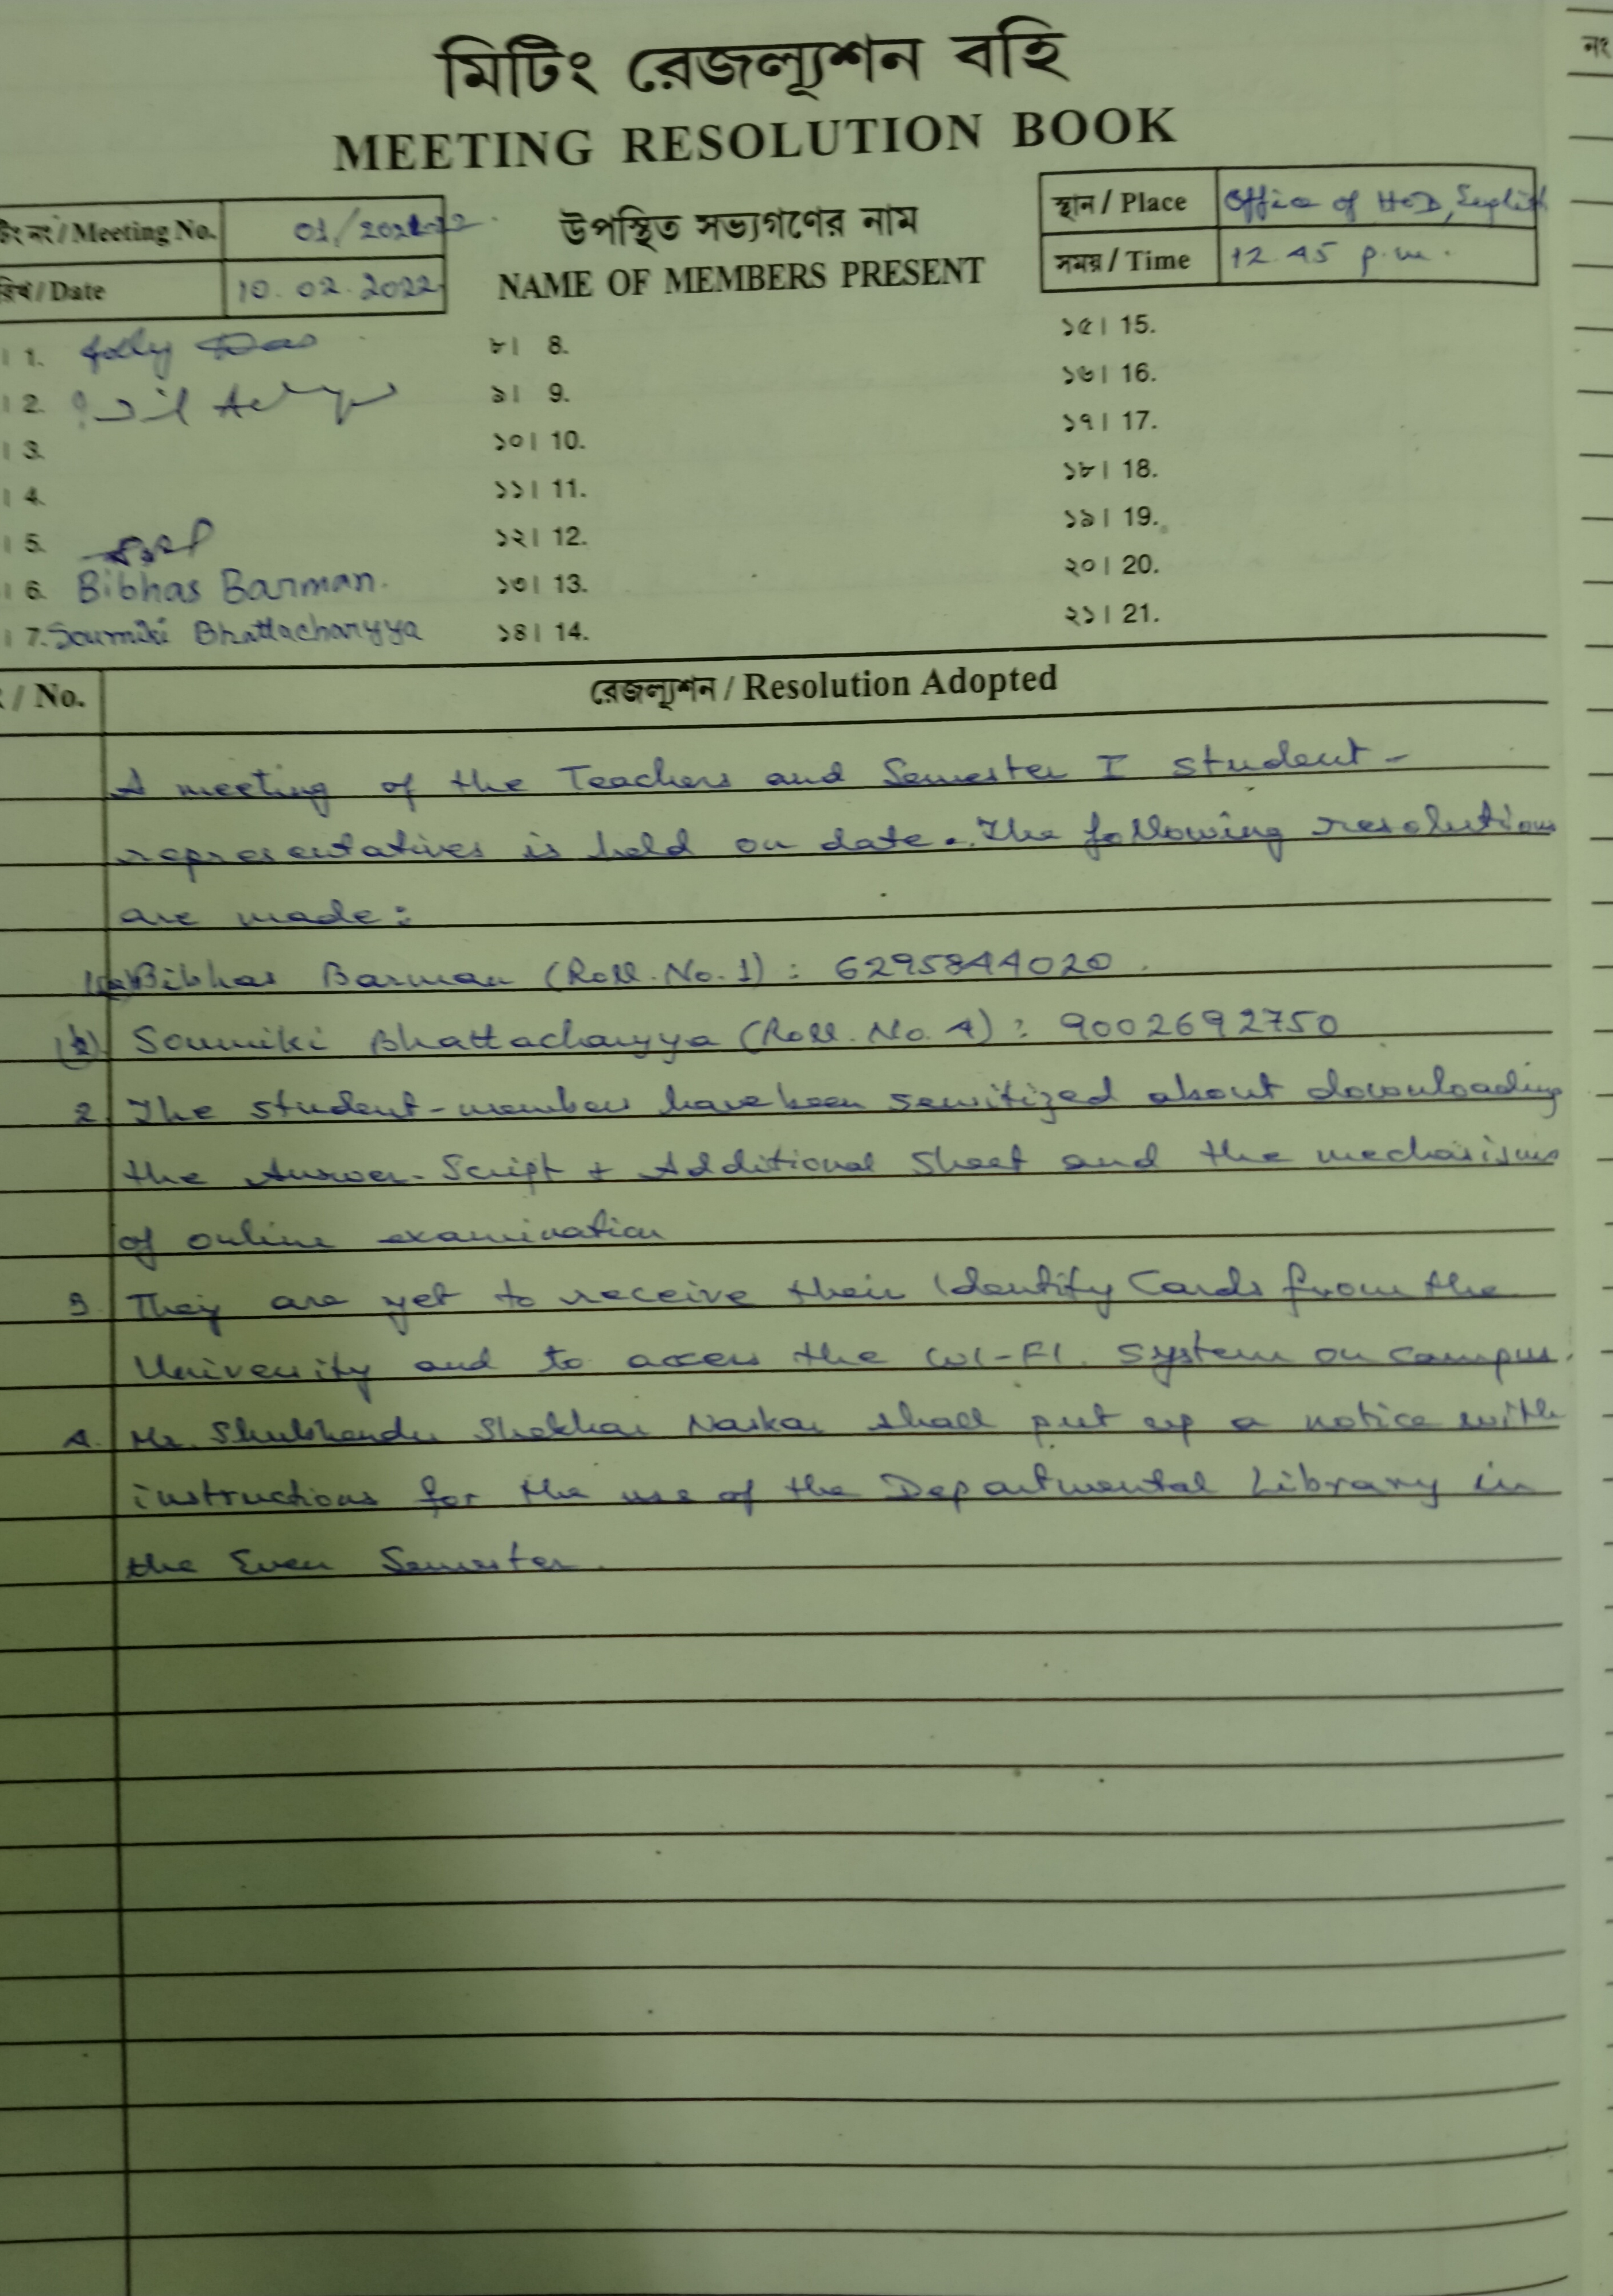 নং
মিটিং রেজল্যূশন বহি
MEETING RESOLUTION BOOK
টিং নং / Meeting No. 01/2021-22
উপস্থিত সভ্যগণের নাম
স্থান / Place Office of HoD, English
রিখ / Date 10.02.2022
NAME OF MEMBERS PRESENT
সময় / Time 12.45 p.m.
। 1. Jolly Das
৮। 8.
১৫। 15.
। 2.
৯। 9.
১৬। 16.
। 3.
১০। 10.
১৭। 17.
। 4.
১১। 11.
১৮। 18.
। 5.
১২। 12.
১৯। 19.
। 6. Bibhas Barman.
১৩। 13.
২০। 20.
। 7. Soumiki Bhattacharyya
১৪। 14.
২১। 21.
/ No.
রেজল্যূশন / Resolution Adopted
A meeting of the Teachers and Semester I student-
representatives is held on date. The following resolutions
are made:
1(a) Bibhas Barman (Roll. No. 1) : 6295844020.
(b) Soumiki Bhattacharyya (Roll. No. 4) : 9002692750
2. The student-members have been sensitized about downloading
the Answer-Script + Additional Sheet and the mechanisms
of online examination
3. They are yet to receive their Identity Cards from the
University and to access the WI-FI. system on campus.
4. Mr. Shubhendu Shekhar Naskar shall put up a notice with
instructions for the use of the Departmental Library in
the Even Semester.